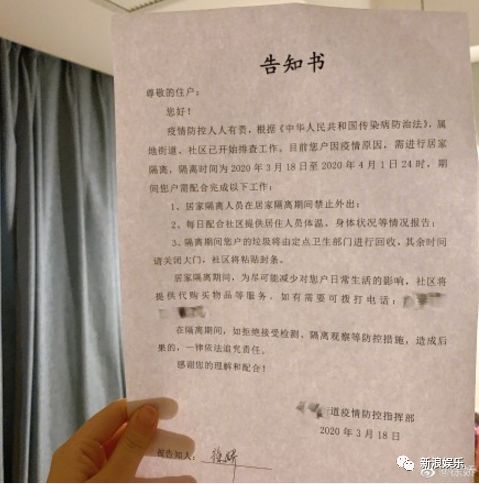 告知书
尊敬的住户：
您好！
疫情防控人人有责，根据《中华人民共和国传染病防治法》，属
地街道、社区已开始排查工作。目前您户因疫情原因，需进行居家
隔离，隔离时间为 2020 年 3 月 18 日至 2020 年 4 月 1 日 24 时，期
间您户需配合完成以下工作：
1、居家隔离人员在居家隔离期间禁止外出；
2、每日配合社区提供居住人员体温、身体状况等情况报告；
3、隔离期间您户的垃圾将由定点卫生部门进行回收，其余时间
请关闭大门，社区将粘贴封条。
居家隔离期间，为尽可能减少对您户日常生活的影响，社区将
提供代购买物品等服务。如有需要可拨打电话：
在隔离期间，如拒绝接受检测、隔离观察等防控措施，造成后
果的，一律依法追究责任。
感谢您的理解和配合！
道疫情防控指挥部
2020 年 3 月 18 日
被告知人：徐娇
新浪娱乐
@徐娇